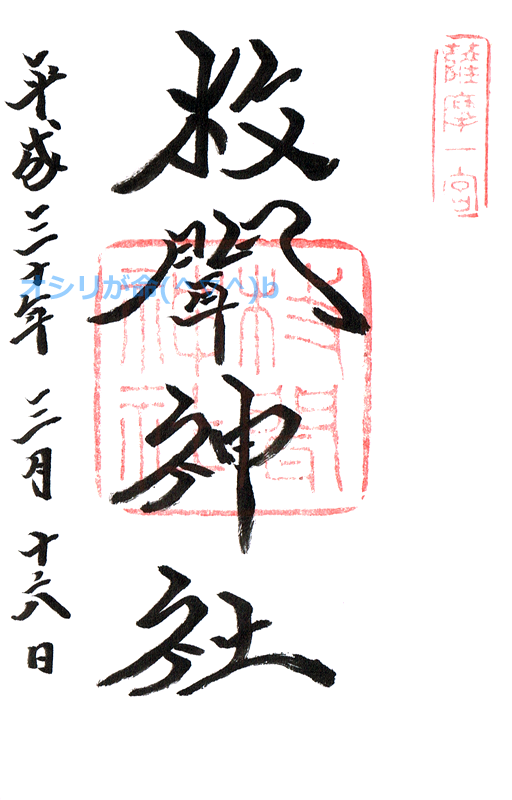 薩摩一宮
枚聞神社
枚聞
神社
平成三十年 三月 十六日
オシリが命